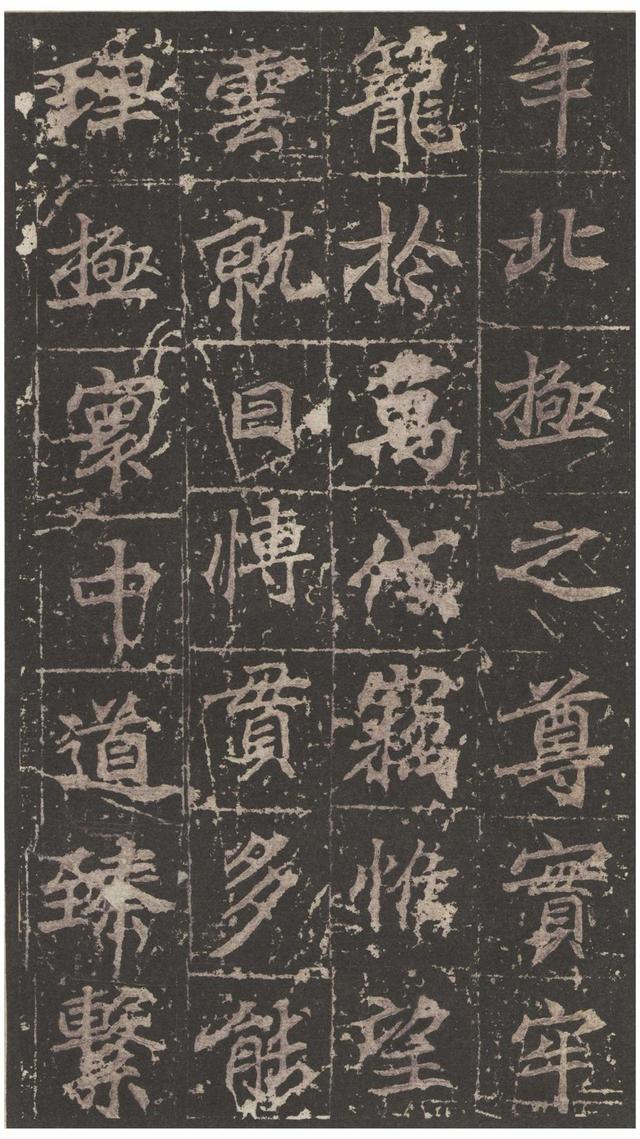 年北極之尊實牢
籠於萬代竊惟望
雲就日愽貫多能
理極寰中道臻繫